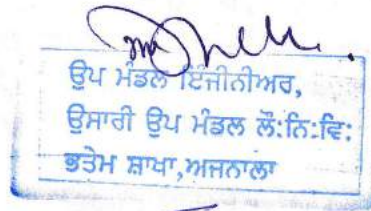 ਉਪ ਮੰਡਲ ਇੰਜੀਨੀਅਰ,
ਉਸਾਰੀ ਉਪ ਮੰਡਲ ਲੋ:ਨਿ:ਵਿ:
ਭਤੇਮ ਸ਼ਾਖਾ,ਅਜਨਾਲਾ